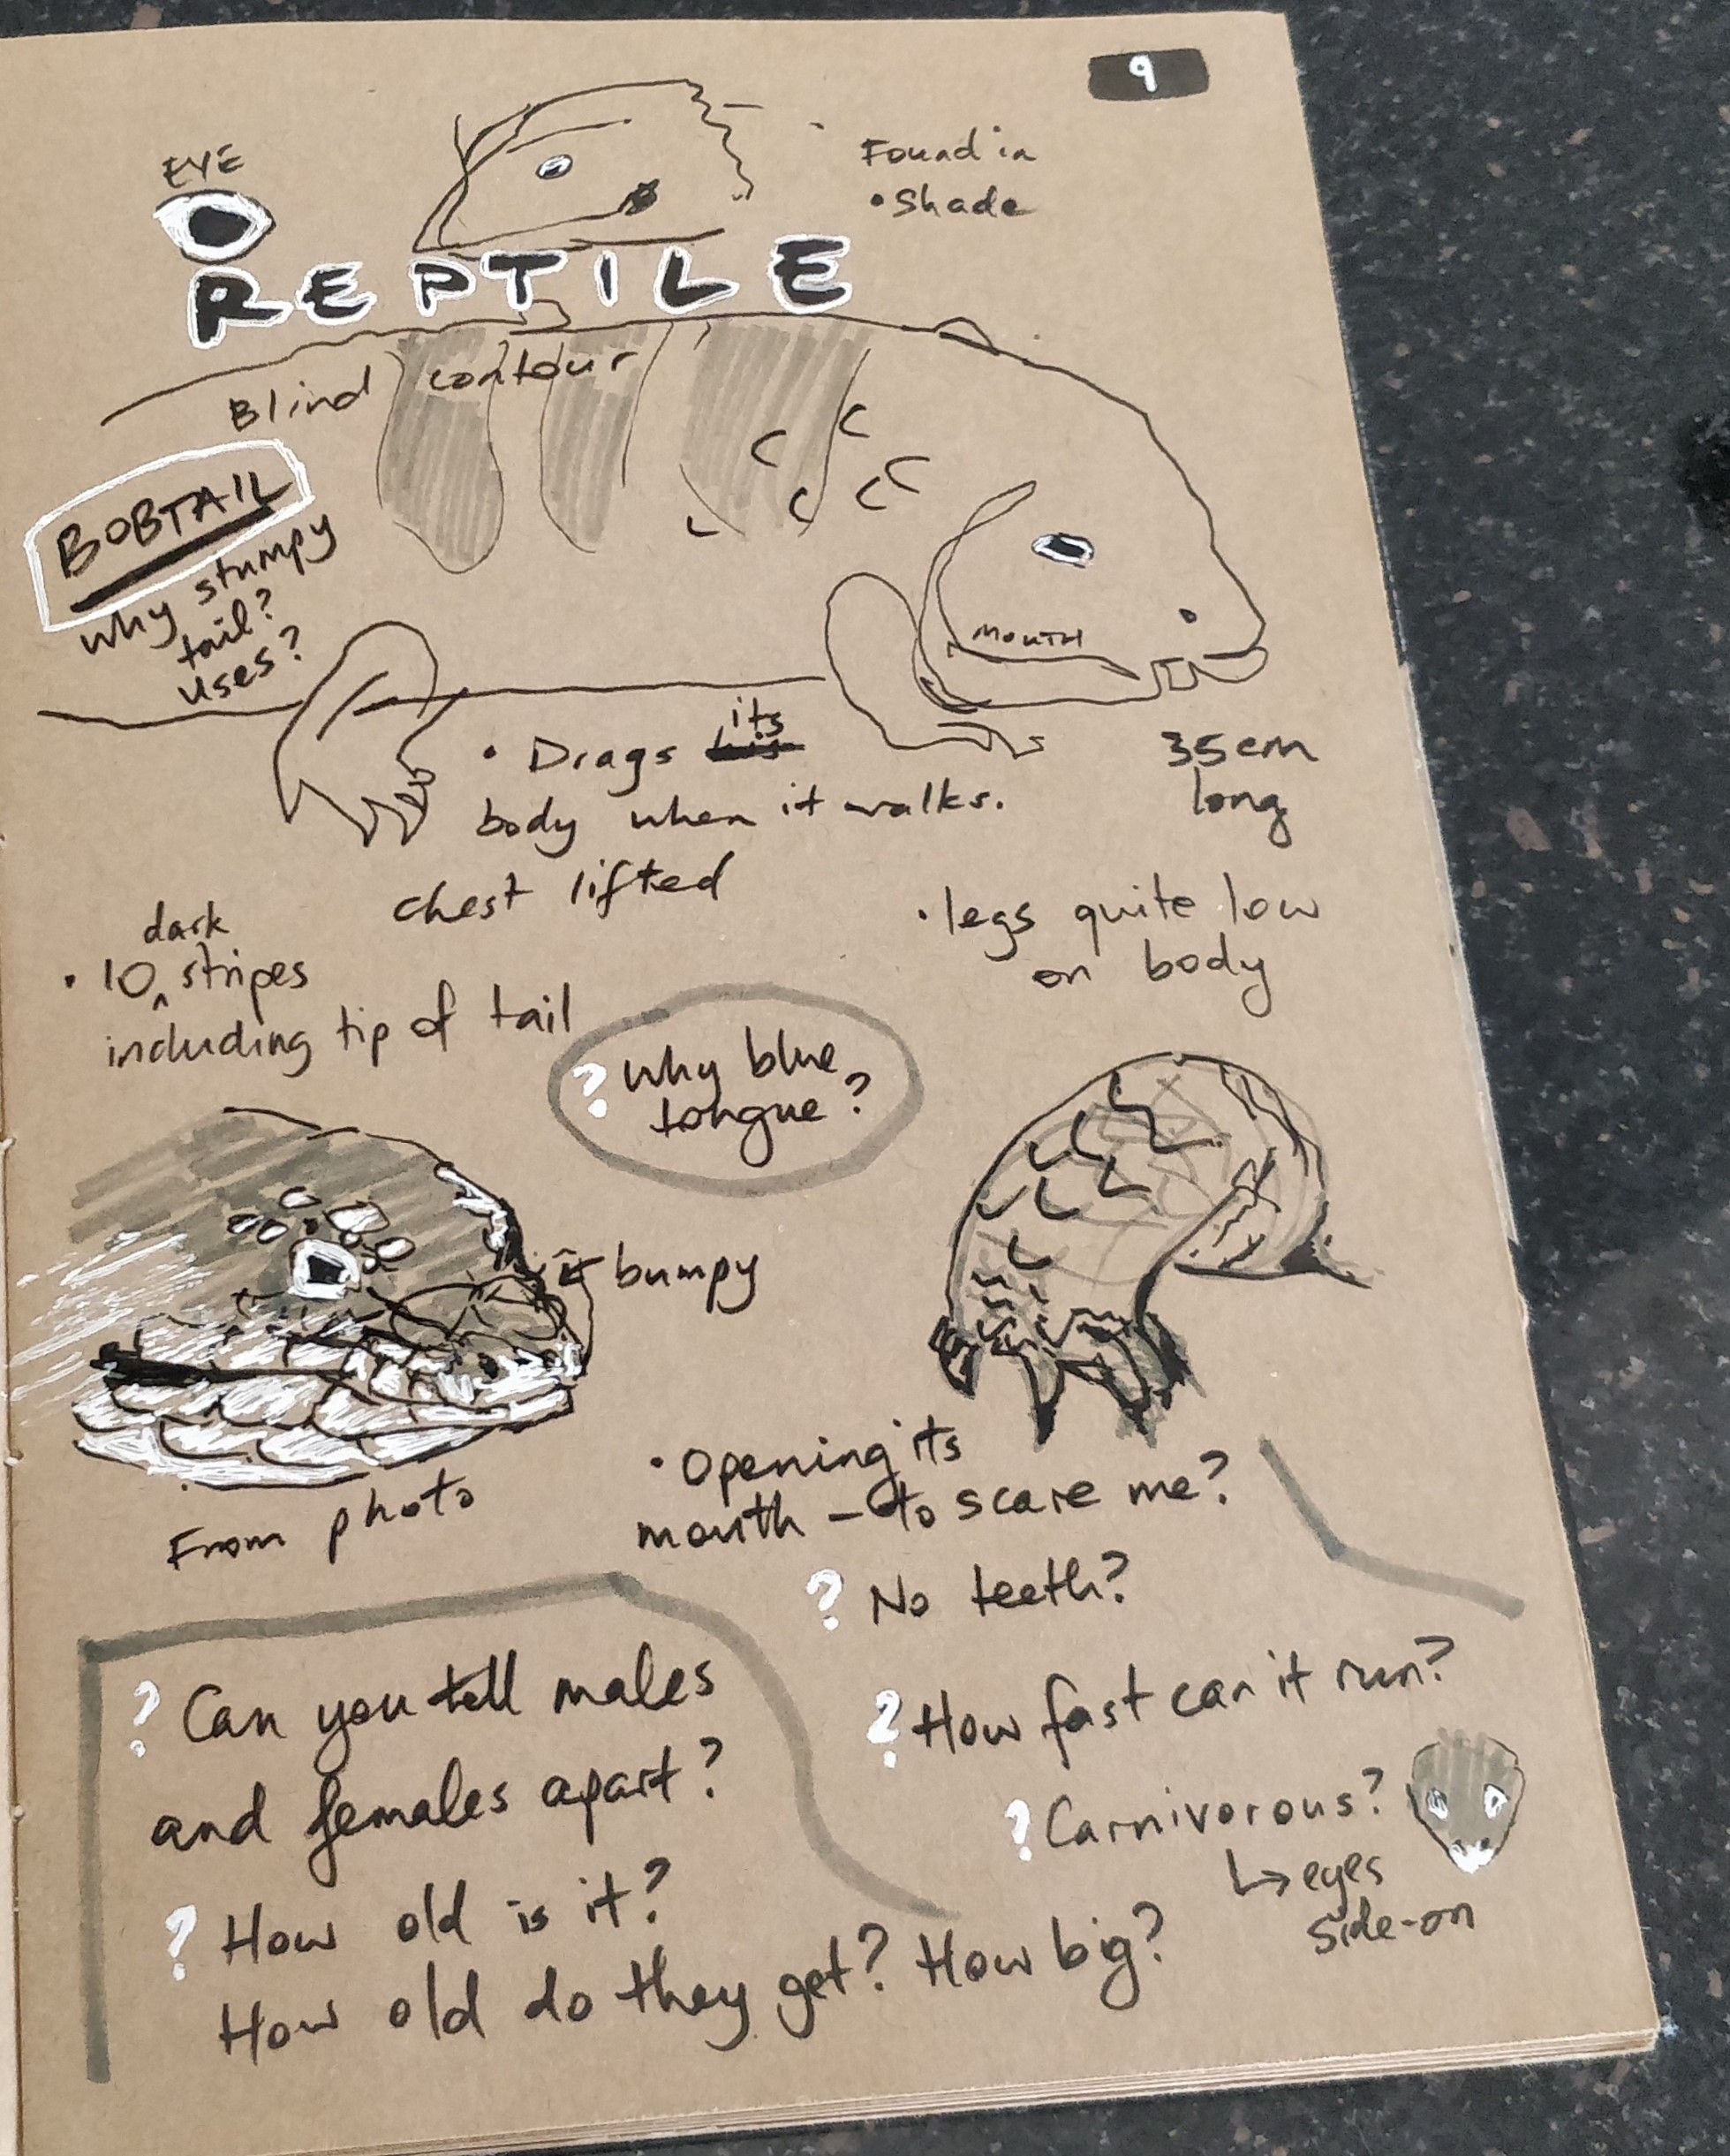 9
EYE
Found in
• Shade
REPTILE
Blind contour
BOBTAIL
why stumpy
tail?
uses?
MOUTH
• Drags its
body when it walks.
chest lifted
35cm
long
• legs quite low
on body
dark
• 10 ^ stripes
including tip of tail
? why blue
tongue?
bumpy
From photo
• Opening its
mouth – to scare me?
? No teeth?
? How fast can it run?
? Carnivorous?
↳ eyes
side-on
? Can you tell males
and females apart?
? How old is it?
How old do they get? How big?